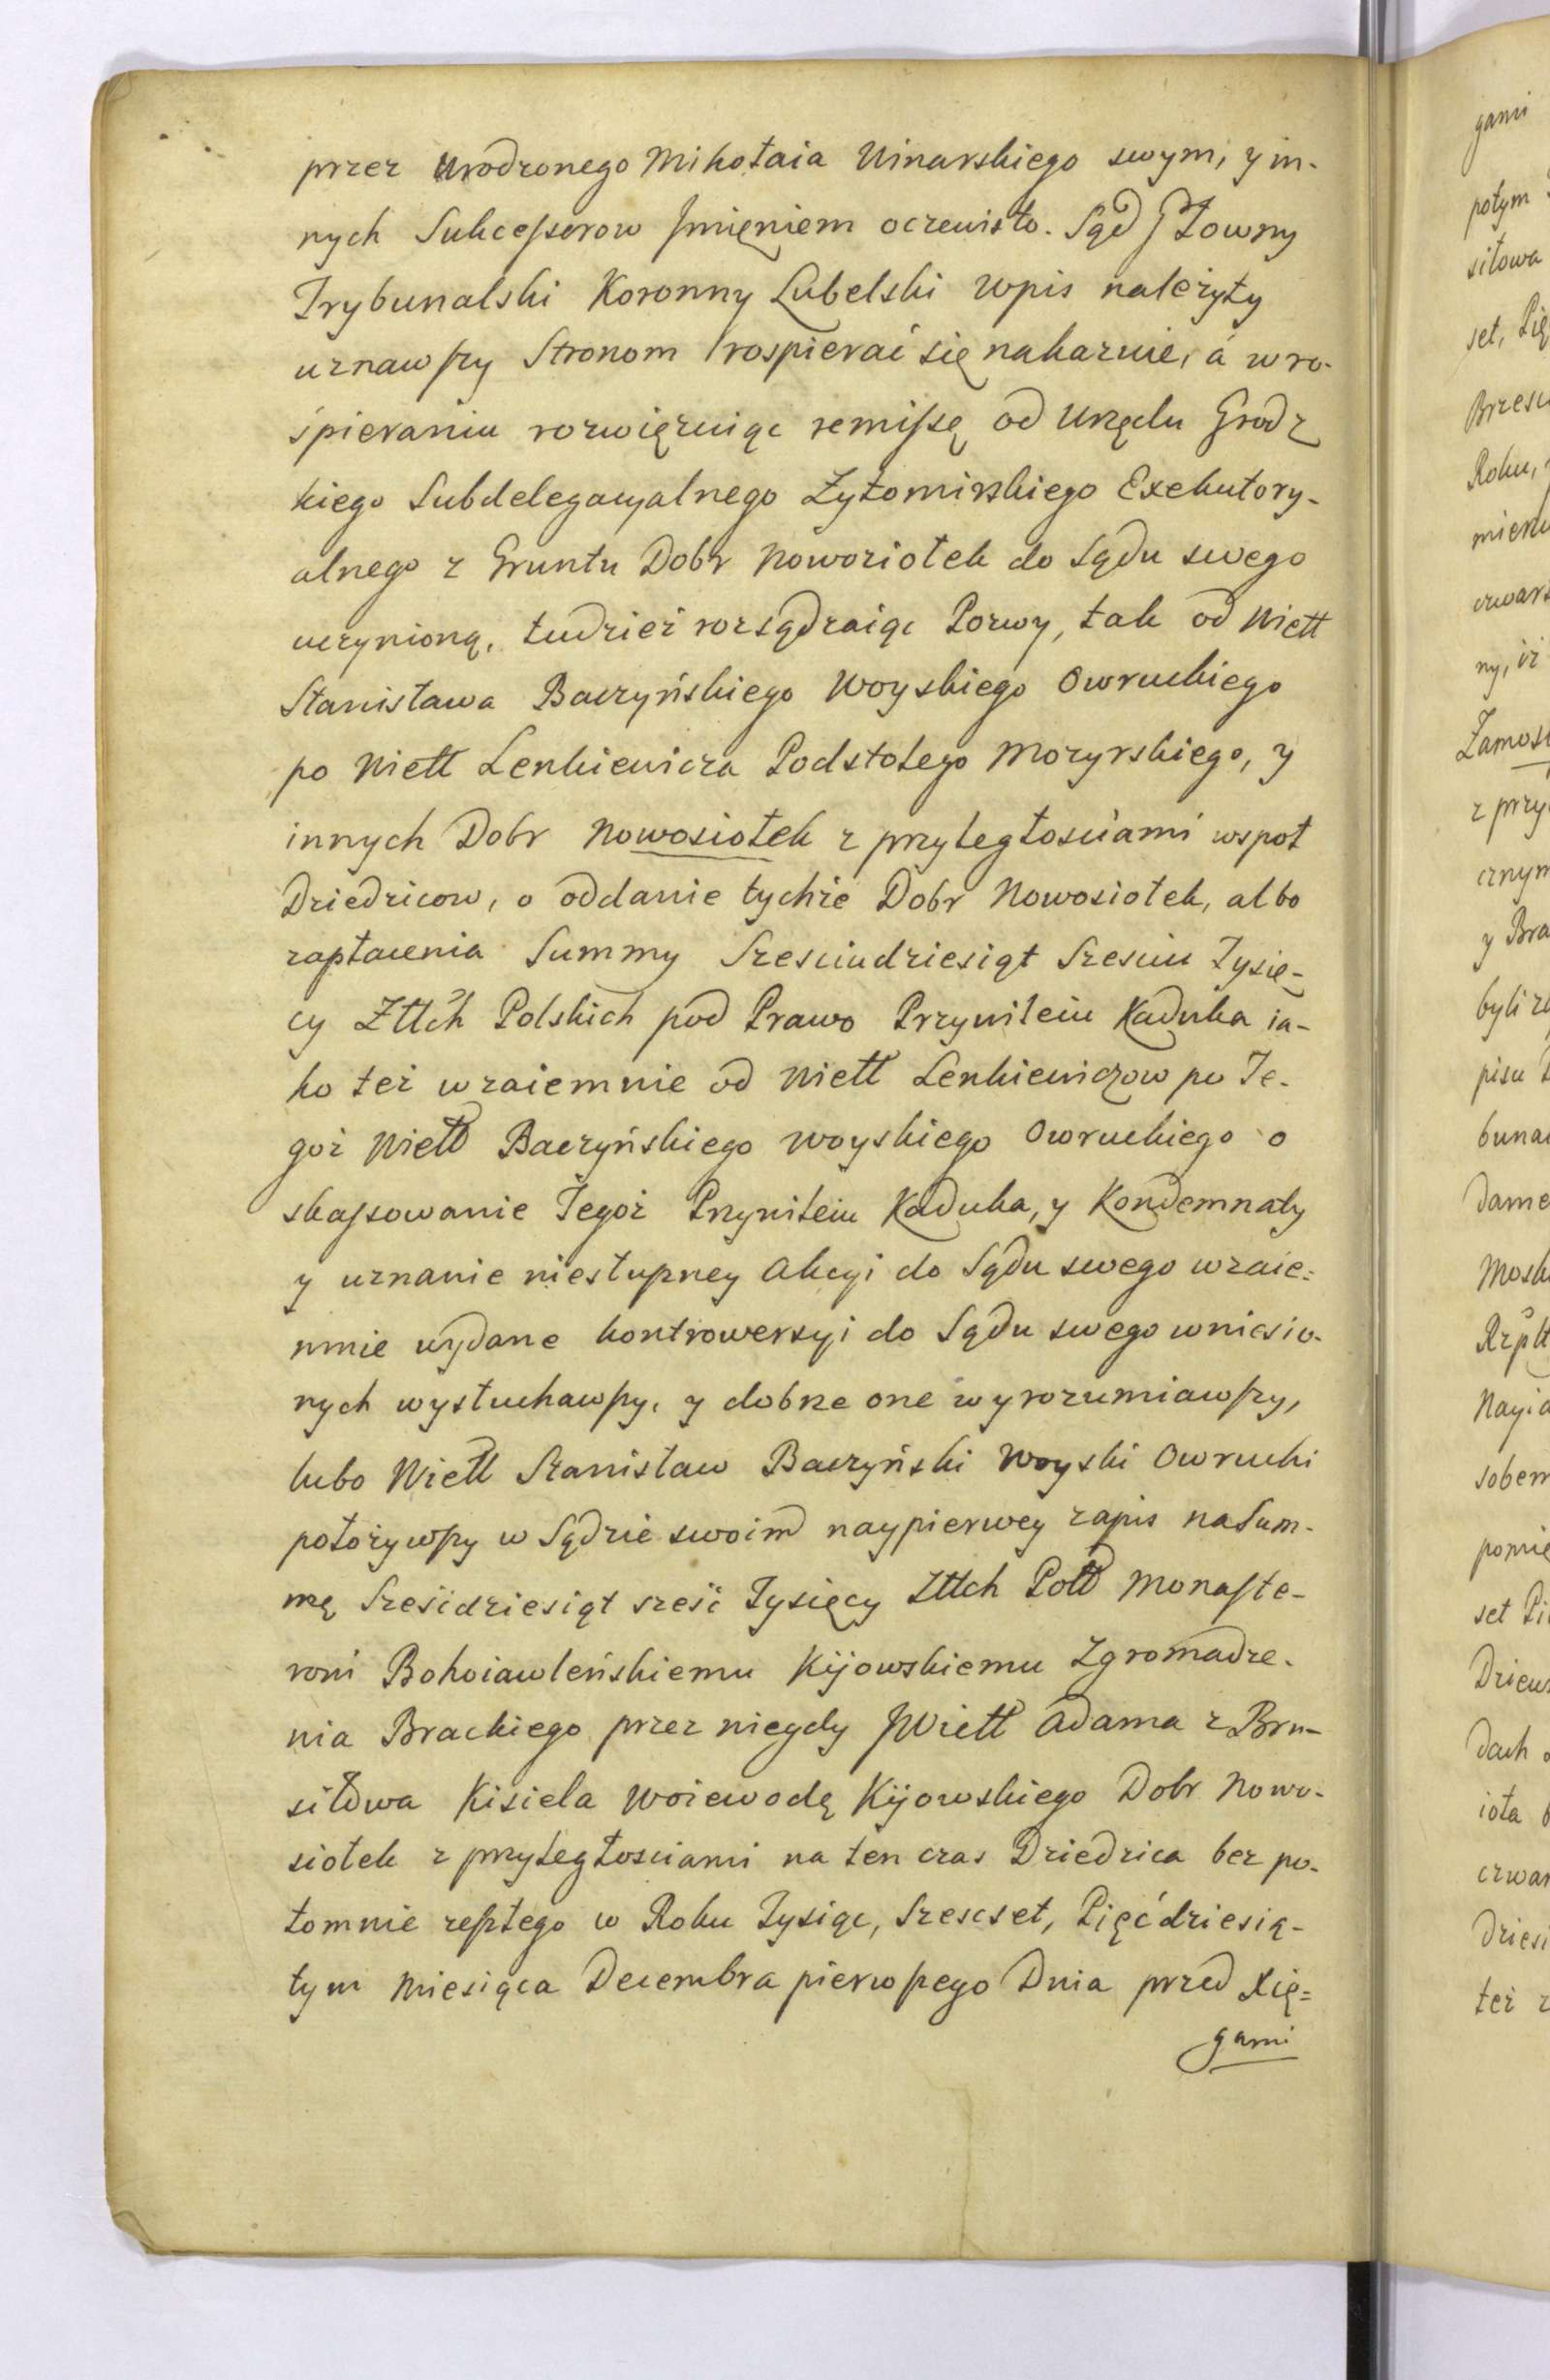 przez Urodzonego Mikołaia Winarskiego swym, y in-
nych Sukcessorow Jmięniem oczewisto. Sąd Głowny
Trybunalski Koronny Lubelski Wpis należyty
uznawszy Stronom rospierać się nakazuie, á w ro-
śpieraniu rozwięzuiąc remissę od Urzędu Grodz
kiego Subdelegacyalnego Zytomirskiego Exekutory-
alnego z Gruntu Dobr Nowoziołek do Sądu swego
uczynioną, tudzież rozsądzaiąc Pozwy, tak od Wiełł
Stanisława Baczyńskiego Woyskiego Owruckiego
po Wiełł Lenkiewicza Podstolego Mozyrskiego, y
innych Dobr Nowosiołek z przyległościami wspoł
Dziedzicow, o oddanie tychże Dobr Nowosiołek, albo
zapłacenia Summy Szesciudziesiąt Szesciu Tysię-
cy Złłch Polskich pod Prawo Przywileiu Kaduka ia-
ko też wzaiemnie od Wiełł Lenkiewiczow po Te-
goż Wiełł Baczyńskiego Woyskiego Owruckiego o
skassowanie Tegoż Przywileiu Kaduka, y Kondemnaty
y uznanie niestupney Akcyi do Sądu swego wzaie=
mnie wydane kontrowersyi do Sądu swego wniesio-
nych wysłuchawszy, y dobrze one wyrozumiawszy,
lubo Wiełł Stanisław Baczyński Woyski Owrucki
położywszy w Sądzie swoim naypierwey zapis na Sum-
mę Sześćdziesiąt sześć Tysięcy Złłch Poll Monaste-
rowi Bohoiawleńskiemu Kijowskiemu Zgromadze-
nia Brackiego przez niegdy JWiełł Adama z Bru-
siłowa Kisiela Woiewodę Kijowskiego Dobr Nowo-
siołek z przyległosciami na ten czas Dziedzica bez po-
tomnie zeszłego w Roku Tysiąc, Szescset, Pięćdziesią-
tym Miesiąca Decembra pierwszego Dnia przed Xię=
gami
gami
potym
siłowa
set, Pię
Brzesc
Roku,
ny, iż
Zamos
z przy
cznym
y Bra
byli
pisu
buna
dame
Mosk
Nayia
sobem
pomię
set Pi
dach
ioła
czwar
dziesi
też z